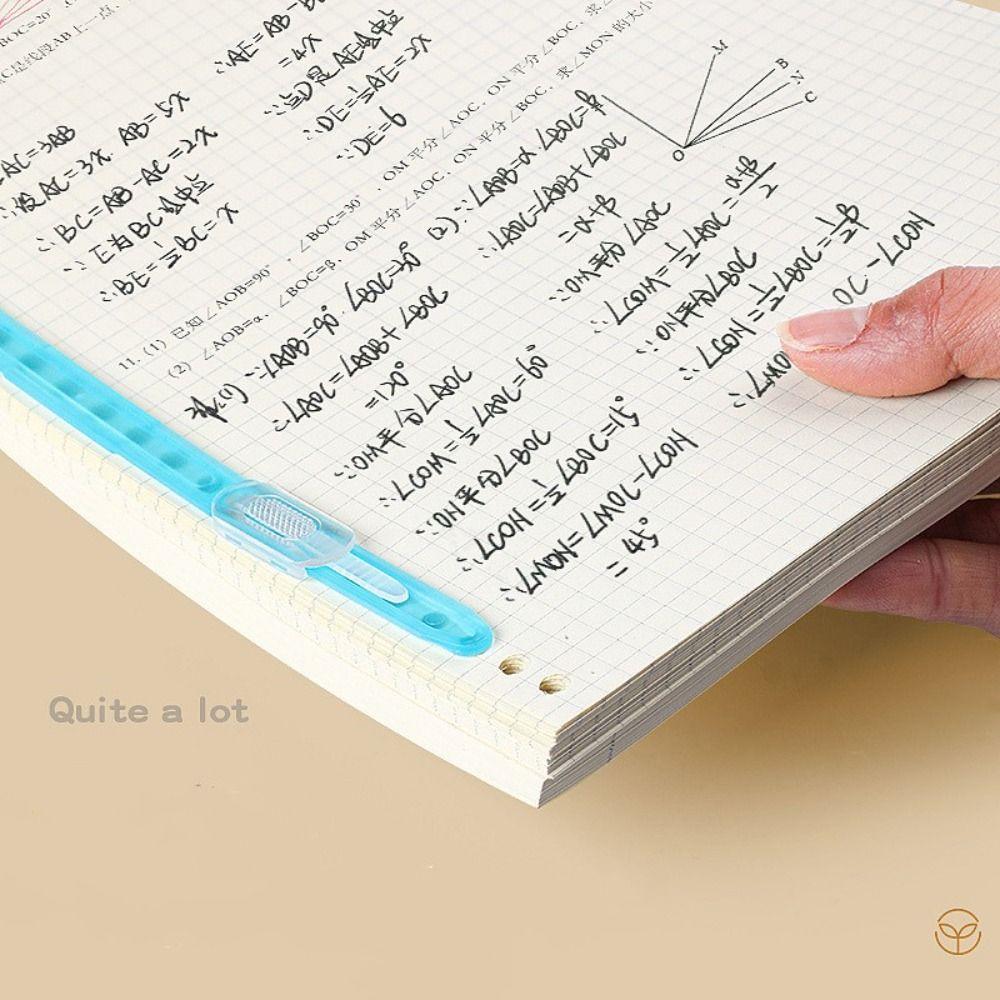 BOC=20°
C是线段AB上一点、
AC=3AB
∴设AC=3x. AB=5x
∴BC=AB-AC=2x
∵E为BC的中点
∴BE=½BC=x
∴AE=AB-BE
=4x
∵点D是AE的中点
∴DE=½AE=2x
∵DE=6
11. (1) 已知∠AOB=90°, ∠BOC=30°, OM平分∠AOC, ON平分∠BOC, 求∠
(2) ∠AOB=α, ∠BOC=β, OM平分∠AOC, ON平分∠BOC, 求∠MON的大小
解:(1) ∵∠AOB=90°. ∠BOC=30°
∴∠AOC=∠AOB+∠BOC
=120°
∵OM平分∠AOC
∴∠COM=½∠AOC=60°
∵ON平分∠BOC
∴∠CON=½∠BOC=15°
∴∠MON=∠MOC-∠CON
=45°
(2)∵∠AOB=α ∠BOC=β
∴∠AOC=∠AOB+∠BOC
=α+β
∵OM平分∠AOC
∴∠COM=½∠AOC=α+β/2
∵ON平分∠BOC
∴∠CON=½∠BOC=½β
∴∠MO OC-∠CON
M
B
N
C
O
Quite a lot